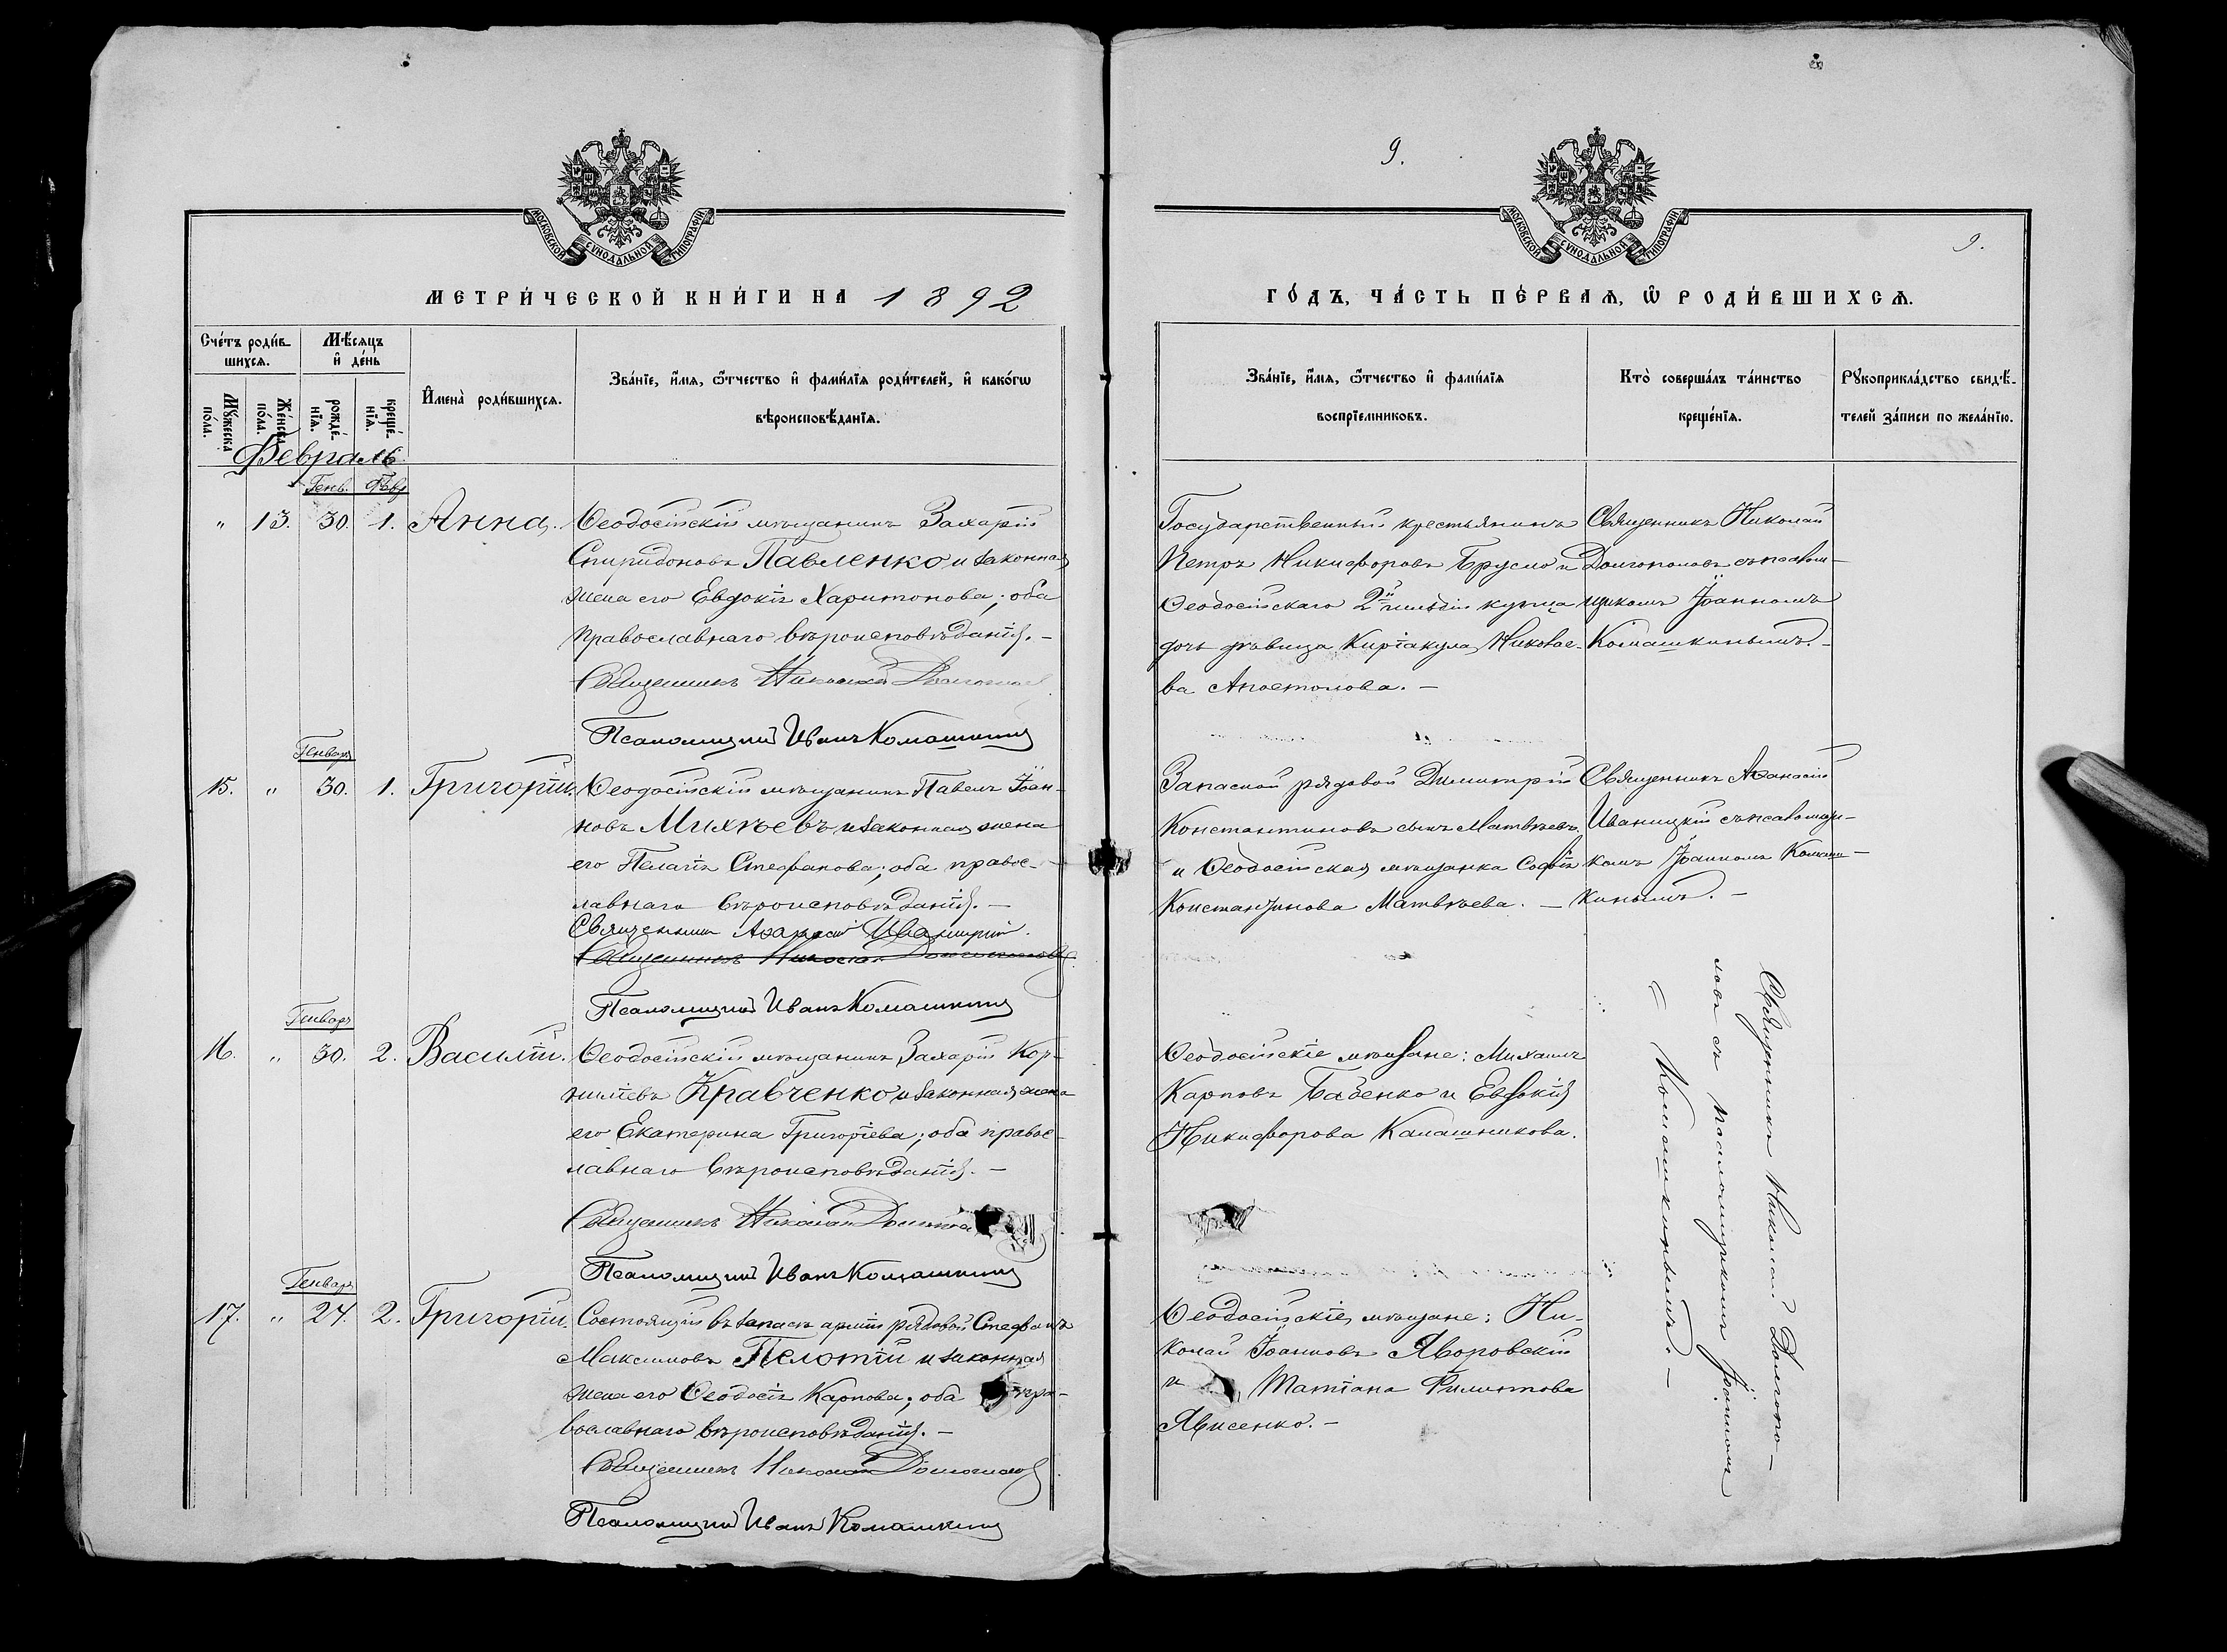 9.
МОСКОВСКОЙ СѴНОДАЛЬНОЙ ТИПОГРАФІИ
МОСКОВСКОЙ СѴНОДАЛЬНОЙ ТИПОГРАФІИ
9.
МЕТРИ́ЧЕСКОЙ КНИ́ГИ НА 1892
ГО́ДЪ, ЧА́СТЬ ПЕ́РВАѦ, Ѿ РОДИ́ВШИХСѦ.
Сче́тъ роди́в-
шихсѧ.
Мꙋжеска
по́ла.
Же́нска
по́ла.
Мѣ́сѧцъ
и҆ де́нь
рожде́-
нїѧ.
креще́-
нїѧ.
И҆мена̀ роди́вшихсѧ.
Зва́нїе, и҆́мѧ, ѻ҆́тчество и҆ фами́лїѧ роди́телей, и҆ како́гѡ
вѣроисповѣ́данїѧ.
Зва́нїе, и҆́мѧ, ѻ҆́тчество и҆ фами́лїѧ
воспрїе́мниковъ.
Кто̀ соверша́лъ та́инство
креще́нїѧ.
Рꙋкоприкла́дство свидѣ́-
телей за́писи по жела́нїю.
Февраль
Генв. Февр
" 13. 30. 1. Анна.
Ѳеодосійскій мѣщанинъ Захарій
Спиридоновъ Павленко и законная
жена его Евдокія Харитонова; оба
православнаго вѣроисповѣданія. –
Священникъ Николай Долгополовъ
Псаломщикъ Иванъ Комашкинъ
Государственный крестьянинъ
Петръ Никифоровъ Брусло и
Ѳеодосійскаго 2й гильдіи купца
дочь дѣвица Киріакула Николае-
ва Апостолова. –
Священникъ Николай
Долгополовъ съ псалом-
щикомъ Іоанномъ
Комашкинымъ. –
Генваря
15. " 30. 1. Григорій.
Ѳеодосійскій мѣщанинъ Павелъ Іоан-
новъ Михѣевъ и законная жена
его Пелагія Стефанова; оба правос-
лавнаго вѣроисповѣданія. –
Священникъ Аѳанасій Иваницкій
Священникъ Николай Долгополовъ
Псаломщикъ Иванъ Комашкинъ
Запасной рядовой Димитрій
Константиновъ сынъ Матвѣевъ
и Ѳеодосійская мѣщанка Софія
Константинова Матвѣева. –
Священникъ Аѳанасій
Иваницкій съ псаломщи-
комъ Іоанномъ Комаш-
кинымъ. –
Генваря
16. " 30. 2. Василій.
Ѳеодосійскій мѣщанинъ Захарій Кор-
ниліевъ Кравченко и законная жена
его Екатерина Григоріева; оба правос-
лавнаго вѣроисповѣданія. –
Священникъ Николай
Псаломщикъ Иванъ Комашкинъ
Ѳеодосійскіе мѣщане: Михаилъ
Карповъ Бабенко и Евдокія
Никифорова Калашникова.
Священникъ Николай Долгопо-
ловъ съ псаломщикомъ Іоанномъ
Комашкинымъ. –
Генваря
17. " 24. 2. Григорій.
Состоящій въ запасѣ арміи рядовой Стефанъ
Максимовъ и законная
жена его Ѳеодосія Карпова; оба пра-
вославнаго вѣроисповѣданія. –
Священникъ Николай Долгополовъ
Псаломщикъ Иванъ Комашкинъ
Ѳеодосійскіе мѣщане: Ни-
колай Іоанновъ Яворовскій
и Татіана Филиппова